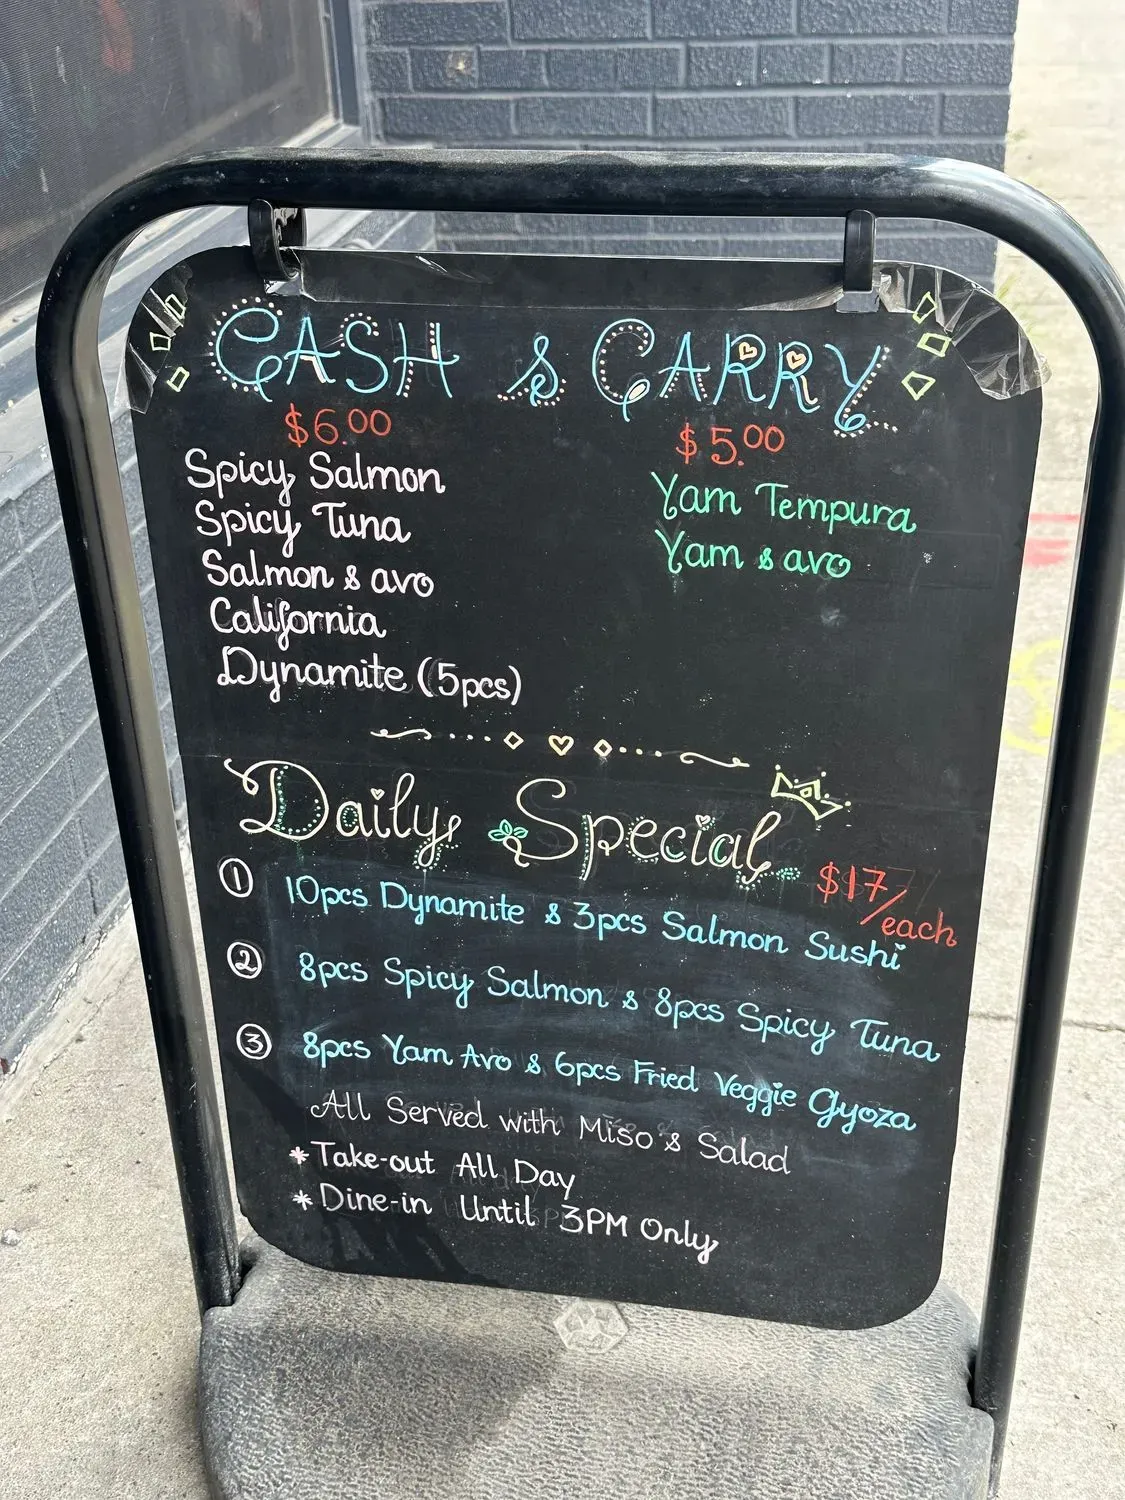 CASH & CARRY
$6.00
Spicy Salmon
Spicy Tuna
Salmon & avo
California
Dynamite (5pcs)
$5.00
Yam Tempura
Yam & avo
Daily Special
$17/each
① 10pcs Dynamite & 3pcs Salmon Sushi
② 8pcs Spicy Salmon & 8pcs Spicy Tuna
③ 8pcs Yam Avo & 6pcs Fried Veggie Gyoza
All Served with Miso & Salad
* Take-out All Day
* Dine-in Until 3PM Only